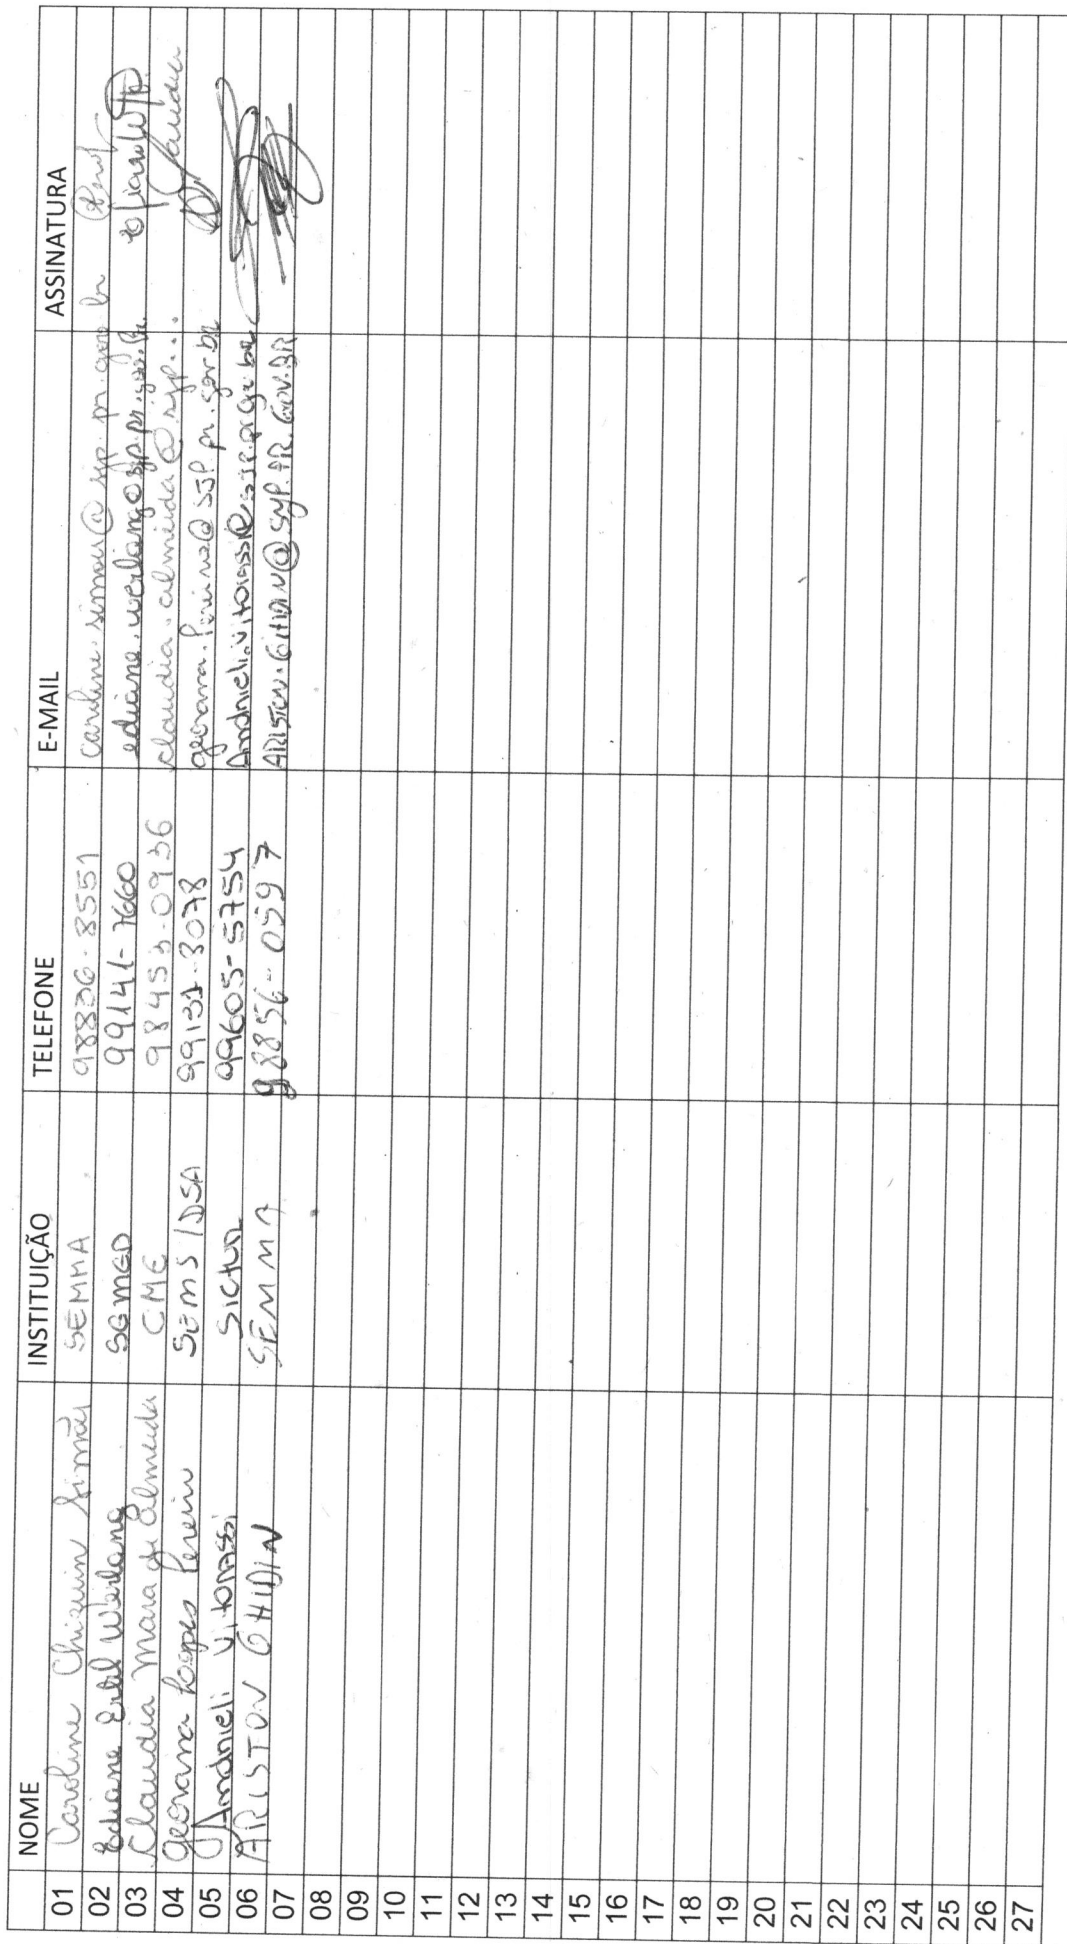 NOME INSTITUIÇÃO TELEFONE E-MAIL ASSINATURA
01 Caroline Chizuin Simões SEMMA 98836-8551 caroline.simoes@sjp.pr.gov.br
02 Ediane Ertel Werlang SEMED 99141-7660 ediane.werlang@sjp.pr.gov.br
03 Claudia Mara de Almeida CME 98453-0936 claudia.almeida@sjp... Claudia
04 Geovana Lopes Pereira SEMS/DSA 99131-3078 geovana.pereira@SJP.pr.gov.br
05 Andrieli Vitorassi Sictur 99605-5754
06 ARISTON GHIDIN SEMMA 98856-0597 ARISTON.GHIDIN@SJP.PR.GOV.BR
07
08
09
10
11
12
13
14
15
16
17
18
19
20
21
22
23
24
25
26
27